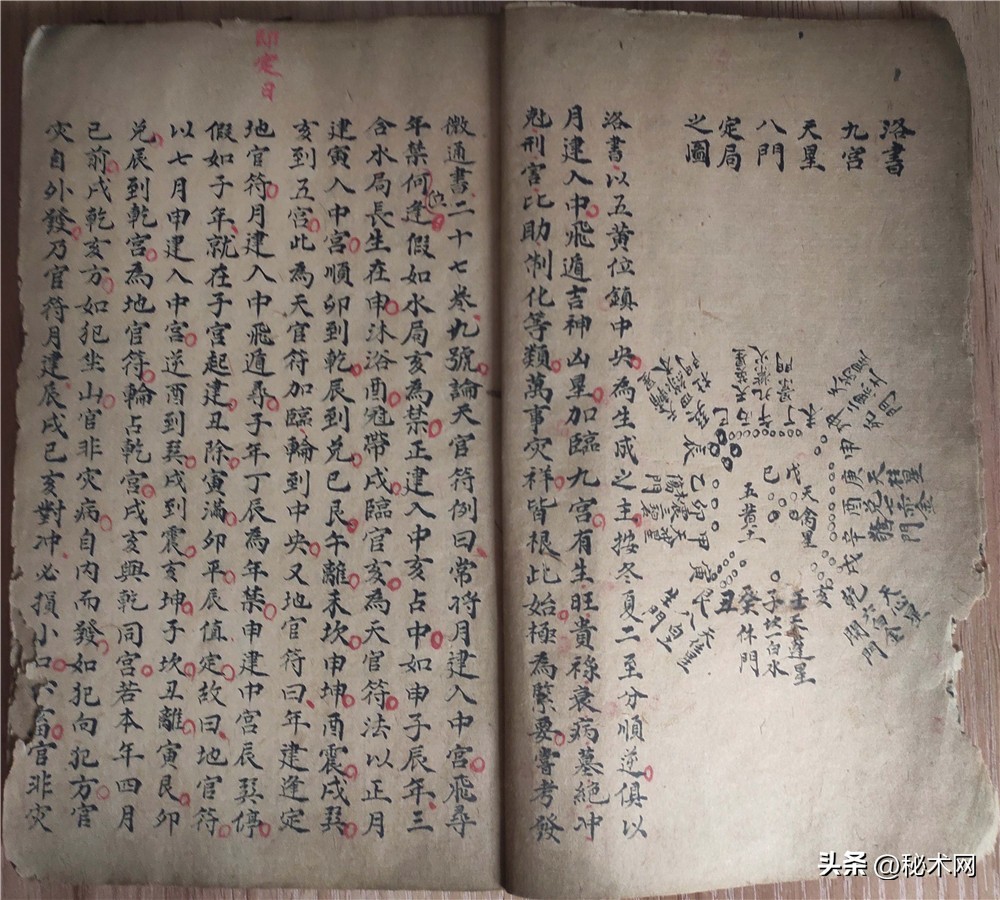 洛書
九宮
天星
八門
定局
之圖
未
丁
午
丙
巳
辰
乙
卯
甲
寅
丑
癸
子坎一白水
壬天蓬星
休門
亥
戌
辛
酉
庚
申
戊
己
天禽星
五黃土
傷門
生門
洛書以五黃位鎮中央為生成之主按冬夏二至分順逆俱以
月建入中飛遁吉神凶星加臨九宮有生旺貴祿衰病墓絕冲
尅刑害比助制化等類萬事灾祥皆根此始極為緊要嘗考發
微通書二十七卷九號論天官符例曰常将月建入中宮飛尋
位
年禁何逢假如水局亥為禁正建入中亥占中如申子辰年三
合水局長生在申沐浴酉冠帶戌臨官亥為天官符法以正月
建寅入中宮順卯到乾辰到兌巳艮午離未坎申坤酉震戌巽
亥到五宮此為天官符加臨輪到中央又地官符曰年建逢定
地官符月建入中飛遁尋子年丁辰為年禁申建中宮辰巽停
假如子年就在子宮起建丑除寅滿卯平辰值定故曰地官符
以七月申建入中宮逆酉到巽戌到震亥坤子坎丑離寅艮卯
兌辰到乾宮為地官符輪占乾宮戌亥與乾同宮若本年四月
已前戌乾亥方如犯坐山官非灾病自内而發如犯向犯方官
灾自外發乃官符月建辰戌巳亥對冲必損小口六畜官非灾
即定日
头条 @秘术网